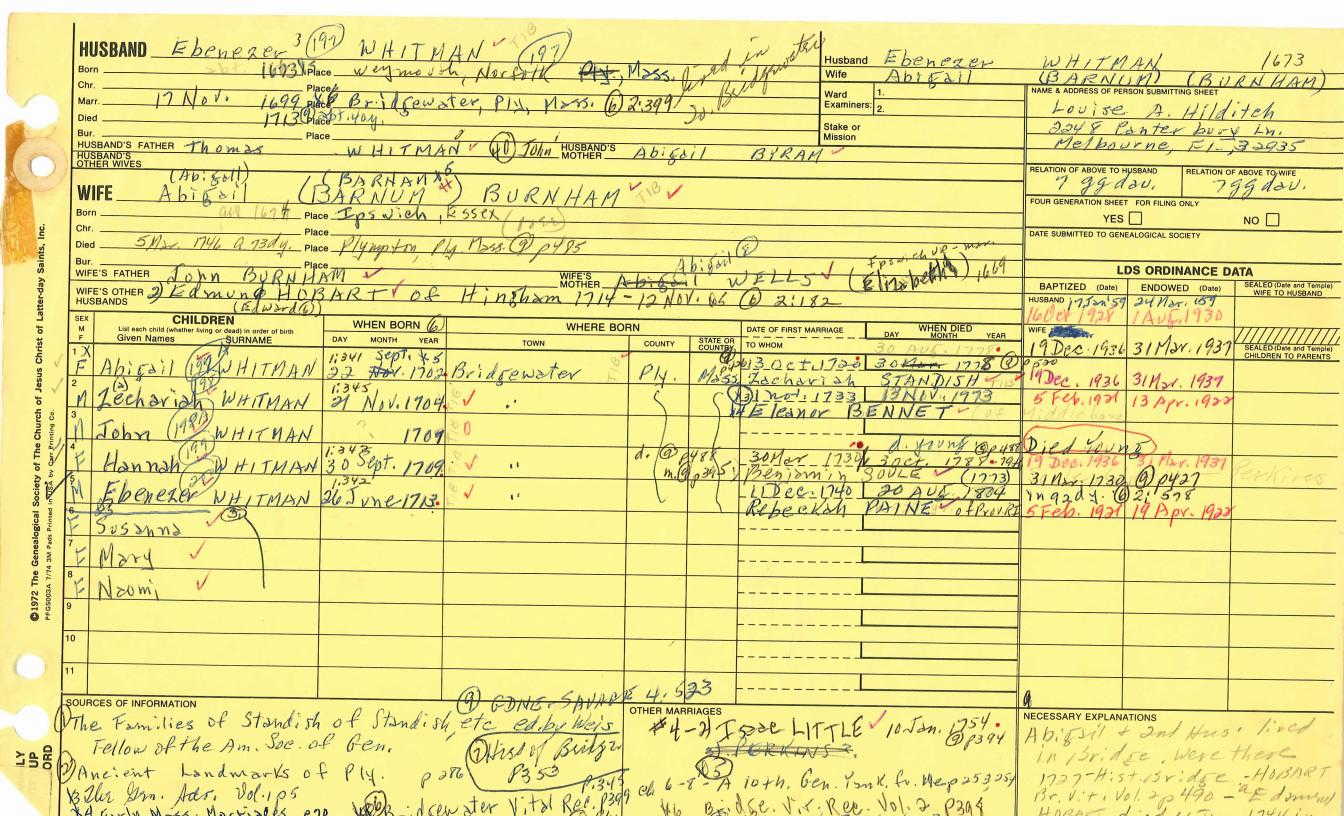 HUSBAND Ebenezer 3 (197) WHITMAN (197) TIB
Born 1673 Place Weymouth, Norfolk Ply, Mass. lived in So. Bridgewater
Chr. Place
Marr. 17 Nov. 1699 Place Bridgewater, Ply, Mass. (6) 2:399
Died 1713 Place
Bur. Place
HUSBAND'S FATHER Thomas WHITMAN (40) John HUSBAND'S MOTHER Abigail BYRAM
HUSBAND'S OTHER WIVES
(Abigall) (BARNAM
WIFE Abigail (BARNUM) BURNHAM TIB
Born abt 1674 Place Ipswich, Essex
Chr. Place
Died 5 Mar. 1746 a. 73dy. Place Plympton, Ply, Mass. (9) p485
Bur. Place
WIFE'S FATHER John BURNHAM WIFE'S MOTHER Abigail Abigail (8) WELLS (Elizabeth) Ipswich up-mar. 1669
WIFE'S OTHER HUSBANDS 2) Edmund HOBART of Hingham 1714-12 Nov. (6) 2:182
(Edward (6))
Husband Ebenezer WHITMAN 1673
Wife Abigail (BARNUM) (BURNHAM)
Ward Examiners: 1.
2.
Stake or Mission
NAME & ADDRESS OF PERSON SUBMITTING SHEET
Louise A. Hilditch
2248 Canterbury Ln.
Melbourne, FL, 32935
RELATION OF ABOVE TO HUSBAND RELATION OF ABOVE TO WIFE
7 ggdau. 7ggdau.
FOUR GENERATION SHEET FOR FILING ONLY
YES NO
DATE SUBMITTED TO GENEALOGICAL SOCIETY
LDS ORDINANCE DATA
BAPTIZED (Date) ENDOWED (Date) SEALED (Date and Temple) WIFE TO HUSBAND
HUSBAND 17 Jan '59 24 Mar. '59
16 Oct 1928 1 Aug. 1930
WIFE
19 Dec. 1936 31 Mar. 1937 SEALED (Date and Temple) CHILDREN TO PARENTS
SEX M F CHILDREN List each child (whether living or dead) in order of birth Given Names SURNAME WHEN BORN (6) DAY MONTH YEAR WHERE BORN TOWN COUNTY STATE OR COUNTRY DATE OF FIRST MARRIAGE TO WHOM WHEN DIED DAY MONTH YEAR
1 X F Abigail (197) WHITMAN 1:341 Sept. 22 Nov. 1702 Bridgewater Ply. Mass 13 Oct. 30 Mar. 1778
Zachariah STANDISH 19 Dec. 1936 31 Mar. 1937
2 M Zechariah (a) WHITMAN 1:345 21 Nov. 1704 " 1 Nov. 1733 12 Nov. 1773 5 Feb. 1921 13 Apr. 1922
Eleanor BENNET
3 M John (197) WHITMAN 1709 d. young p488 Died Young
4 F Hannah (197) WHITMAN 1:343 30 Sept. 1709 " d. (9) p488 30 Mar 1730 3 Oct. 1788 19 Dec. 1936 31 Mar. 1937
m. (9) p395 Benjamin SOULE (1773) 31 Mar. 1730 (9) p427 Perkins
5 M Ebenezer WHITMAN 1:342 26 June 1713 " 11 Dec. 1740 20 AUG. 1804 (6) 2: 578
Rebeckah PAINE of Prov RI 5 Feb. 1921 19 Apr. 1922
6 F Susanna (3)
7 F Mary
8 F Naomi
9
10
11
SOURCES OF INFORMATION (9) GDNE-SAVAGE 4.523
(1) The Families of Standish of Standish, etc ed. by Weis
Fellow of the Am. Soc. of Gen.
(7) Hist of Bridge P353
(2) Ancient Landmarks of Ply. p 286
Vol. 1 p5
Bridgewater Vital Rec. p399
OTHER MARRIAGES
#4-2) Isaac LITTLE 10 Jan. 1754 (9) p394
2) PERKINS?
ch 6-8-A 10th. Gen. Yank. fr. Me p 253, 254
Bridge. Vit. Rec. Vol. 2 p394
NECESSARY EXPLANATIONS
Abigail & 2nd Hus. lived
in Bridge. were there
1727-Hist. Bridge-HOBART
Br. Vit. Vol. 2 p490 - "Edmund
©1972 The Genealogical Society of The Church of Jesus Christ of Latter-day Saints, Inc.
PFGS003A 7/74 3M Pads Printed in USA by Carr Printing Co.
LY
UP
ORD